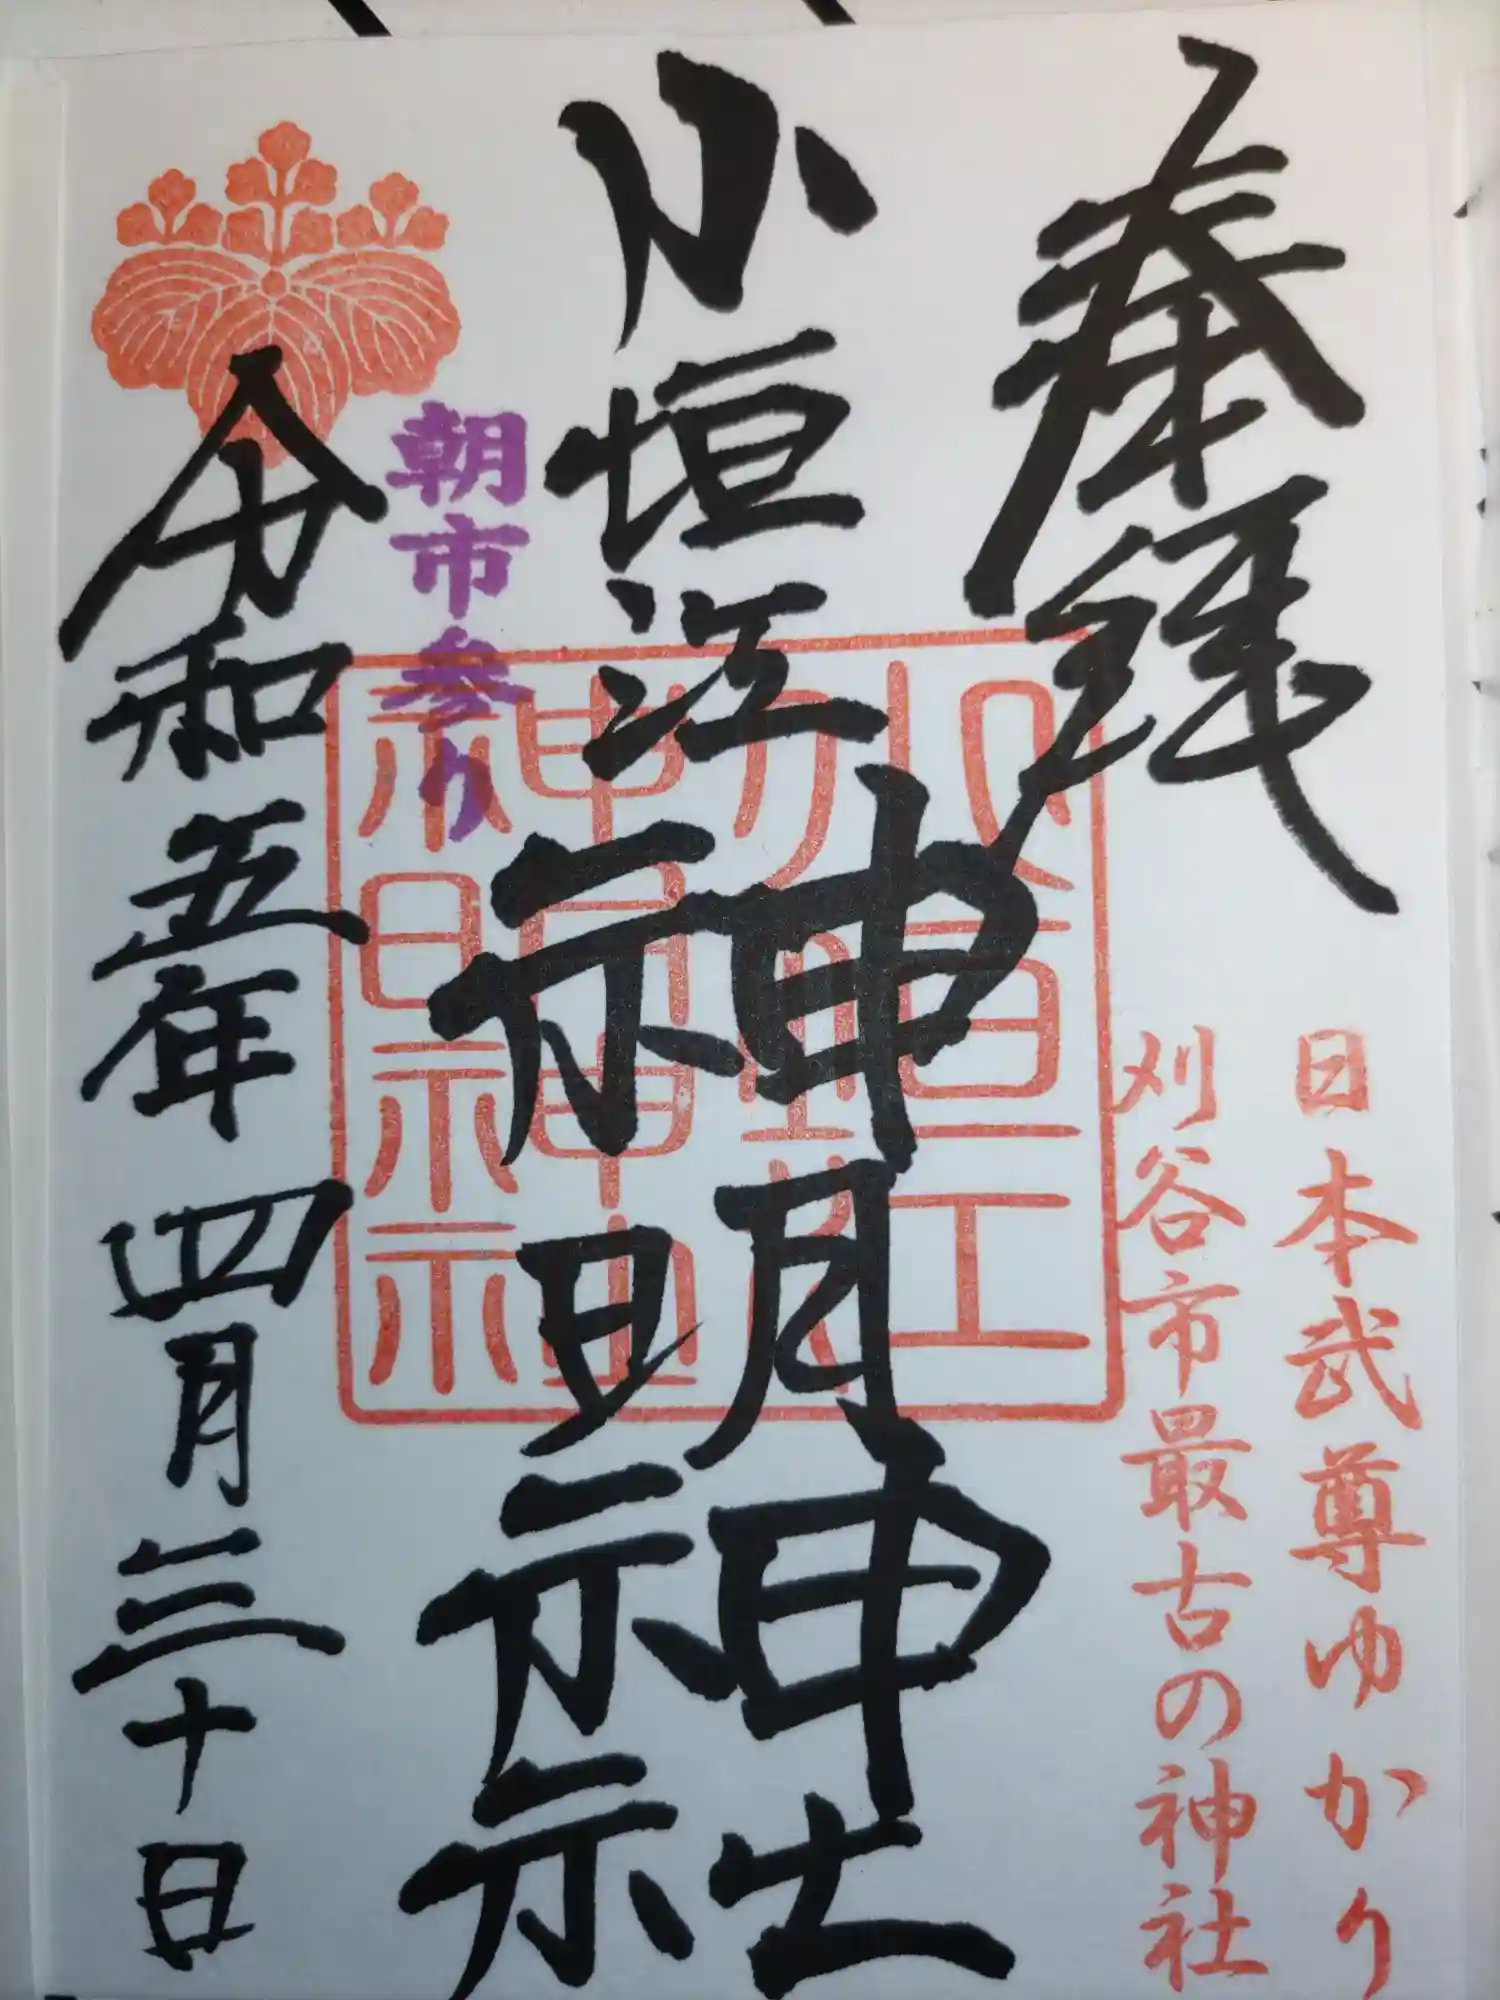 奉拝
日本武尊ゆかり
刈谷市最古の神社
小垣江神明神社
小垣江
神明神社
朝市参り
令和五年四月三十日